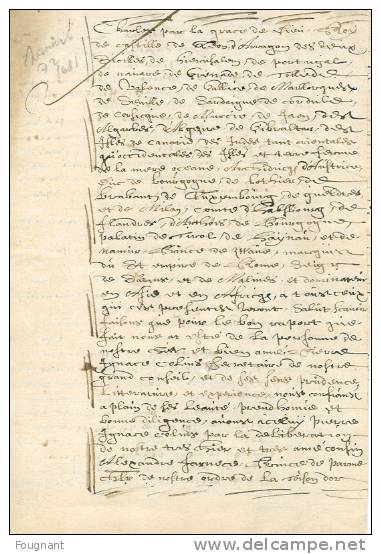 Charles par la grace de Dieu, Roy
de castille de Leon d'arragon des deux
Sicilles de Hierusalem, de portugal
de navare, de Grenade, de Tolede
de Valence, de Gallice, de Maillorques
de Seuille, de Sardaigne de Cordube
de Corsicque, de Murcie de Jaen, des
Algarbes, d'Algezire de Gibraltar, des
Isles de Canarie des Indes tant orientales
qu'occidentales des Isles et terre ferme
de la mere oceane, Archiducq d'Austrice
Duc de bourgogne, de Lothier, de
brabant, de Luxembourg, de gueldres
et de Milan, Comte d'habsbourg, de
flandres, d'Arthois, de bourgogne
palatin de Tirol, de Haÿnau, et de
namur, Prince de Swaue, marquis
du St empire de Rome, Seigr
de Salins, et de Malines, et dominateur
en Asie et en Africq, a tous ceux
qui ces presentes verront, Salut scauoir
faisons que pour le bon raport que
fait nous at esté de la personne de
nostre cher et bien amé Pierre
Ignace Colins Secretaire de nostre
grand conseil, et de ses sens prudence
Litterature, et experience, nous confians
a plain de ses Leauté, preudhomie et
bonne diligence, auons a celuy pierre
Ignace Colins par la deliberation
de nostre tres chier et tres amé cousin
Alexandre farnese, Prince de parme
Chlr de nostre ordre de la toison d'or
Fougnant
delcampe.net